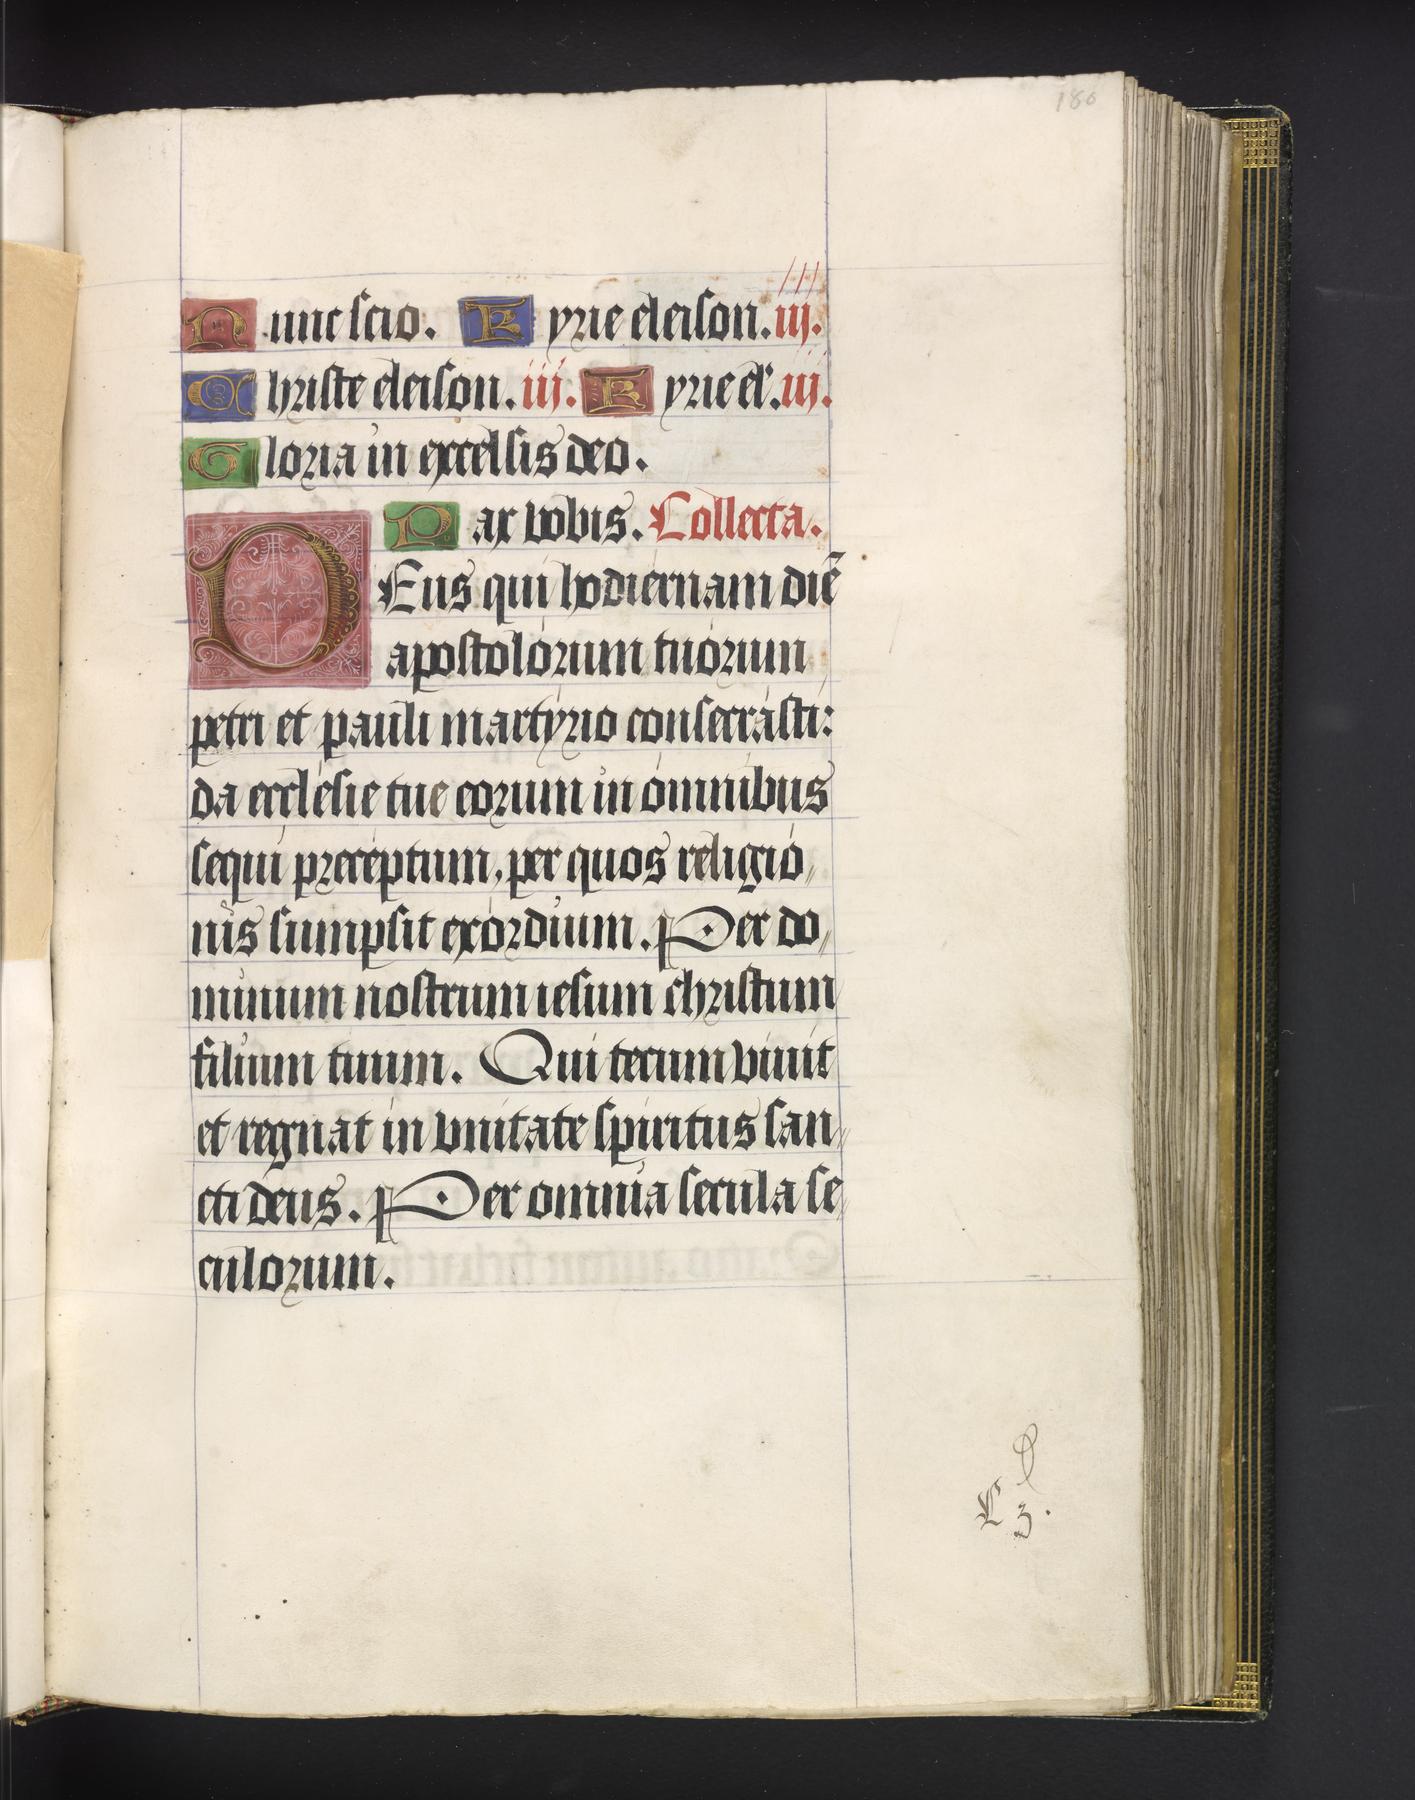 180
Nunc scio. Kyrie eleison. iij.
Christe eleison. iij. Kyrie el'. iij.
Gloria in excelsis deo.
Pax vobis. Collecta.
DEus qui hodiérnam diē
apostolórum tuórum
petri et pauli martýrio consecrásti:
da ecclésie tue eorum in ómnibus
sequi precéptum, per quos religió,,
nis sumpsit exórdium. Per do,,
minum nostrum iesum christum
filium tuum. Qui tecum viuit
et regnat in vnitate spiritus san,,
cti deus. Per omnia secula se,,
culorum.
C 3.